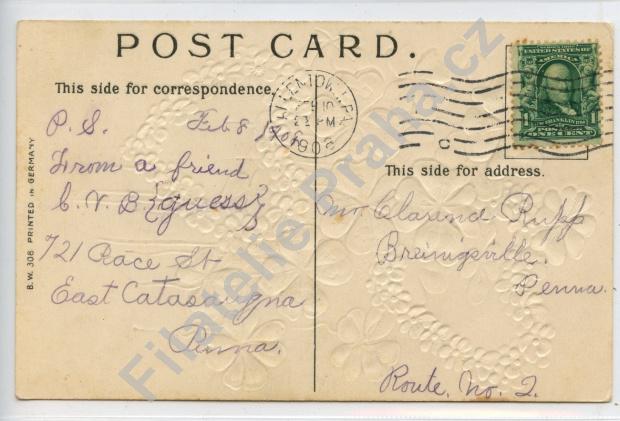 POST CARD.
This side for correspondence.
ALLENTOWN, PA.
FEB 10
PM
1909
UNITED STATES OF
AMERICA
1
FRANKLIN
POSTAGE
ONE CENT
P. S. Feb 8
From a friend
C. V. B {guess}
721 Race St
East Catasauqua
Penna.
This side for address.
Mr. Clarend Rupp
Breinigsville.
Penna.
Route. No. 2.
B. W. 308 PRINTED IN GERMANY
Filatelie Praha.cz